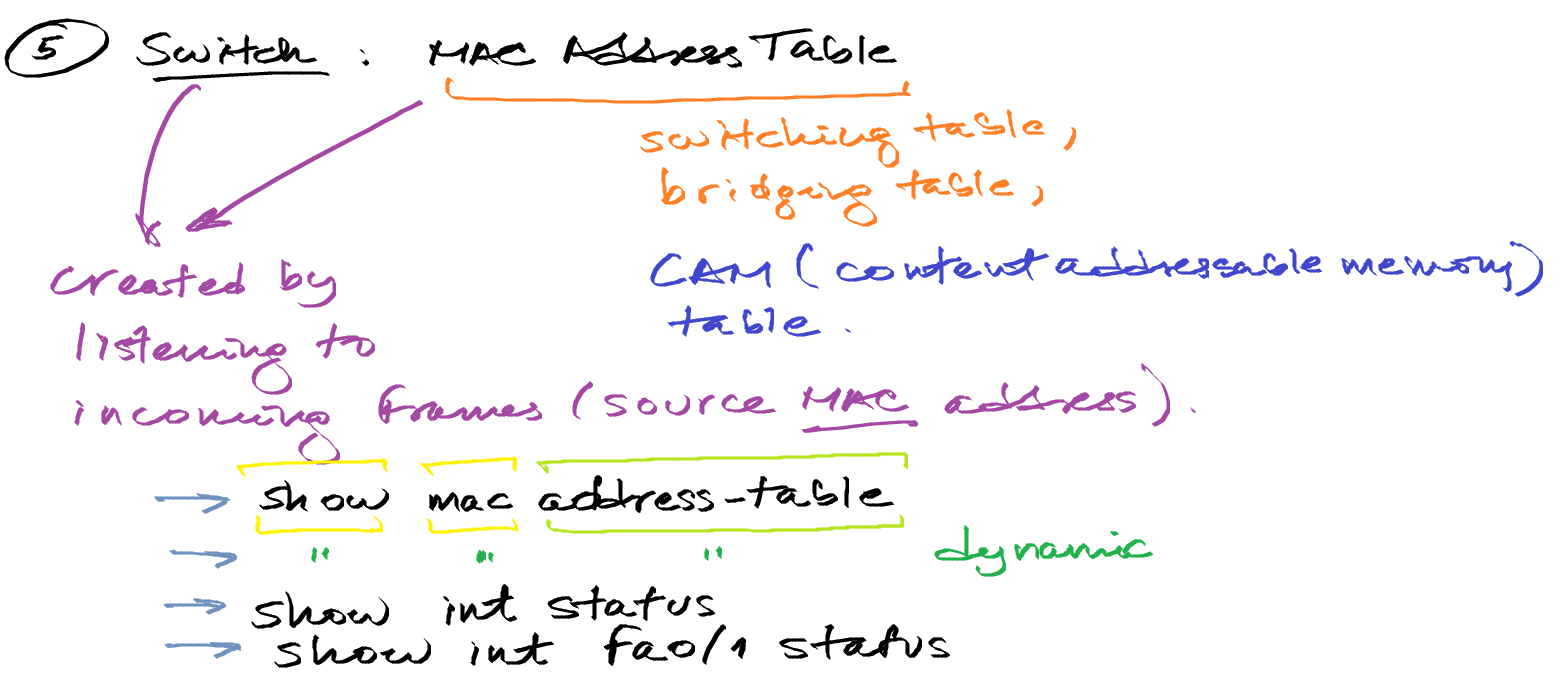 5 Switch : MAC Address Table
switching table,
bridging table,
CAM (content addressable memory)
table.
created by
listening to
incoming frames (source MAC address).
→ show mac address-table
→ " " " dynamic
→ show int status
→ show int fa0/1 status